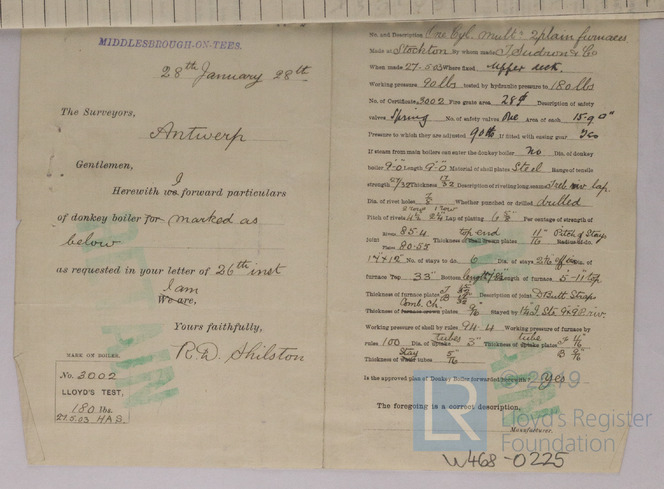 MIDDLESBROUGH-ON-TEES.
28th January 28th
The Surveyors,
Antwerp
Gentlemen,
I
Herewith we forward particulars
of donkey boiler for marked as
below
as requested in your letter of 26th inst
I am
We are,
Yours faithfully,
R.D. Shilston
MARK ON BOILER.
No. 3002
LLOYD'S TEST,
180 lbs.
27.5.03 HAS
No. and Description One Cyl. Mult. 2 plain furnaces
Made at Stockton By whom made T. Sudron & Co
When made 27-5-03 Where fixed Upper deck.
Working pressure 90 lbs tested by hydraulic pressure to 180 lbs
No. of Certificate 3002 Fire grate area 28 Description of safety
valves Spring No. of safety valves One Area of each 15.90"
Pressure to which they are adjusted 90 lb If fitted with easing gear Yes
If steam from main boilers can enter the donkey boiler No Dia. of donkey
boiler 9'-0" Length 9'-0" Material of shell plates Steel Range of tensile
strength 27/32 Thickness 17/32 Description of riveting long. seams
Dia. of rivet holes 7/8" Whether punched or drilled drilled
Pitch of rivets Lap of plating Per centage of strength
of joint Rivets 85.4 Plate 80.55 top end Thickness of shell crown plates 11/16" Pitch of Stays
14" x 12" No. of stays to do. 6 Dia. of stays Dia. of
furnace Top 33" Bottom Length of furnace 5-11" top
Thickness of furnace plates Description of joint D Butt Straps
Comb. Ch.
Thickness of furnace crown plates 9/16" Stayed by
Working pressure of shell by rules 94.4 Working pressure of furnace by
rules 100 Dia. of uptake tubes 3" Thickness of uptake tube plates
Stay
Thickness of water tubes 5/16"
Is the approved plan of Donkey Boiler forwarded herewith? yes
The foregoing is a correct description,
Manufacturer.
RETAIN
© 2019
LR
Lloyd's Register
Foundation
W468-0225